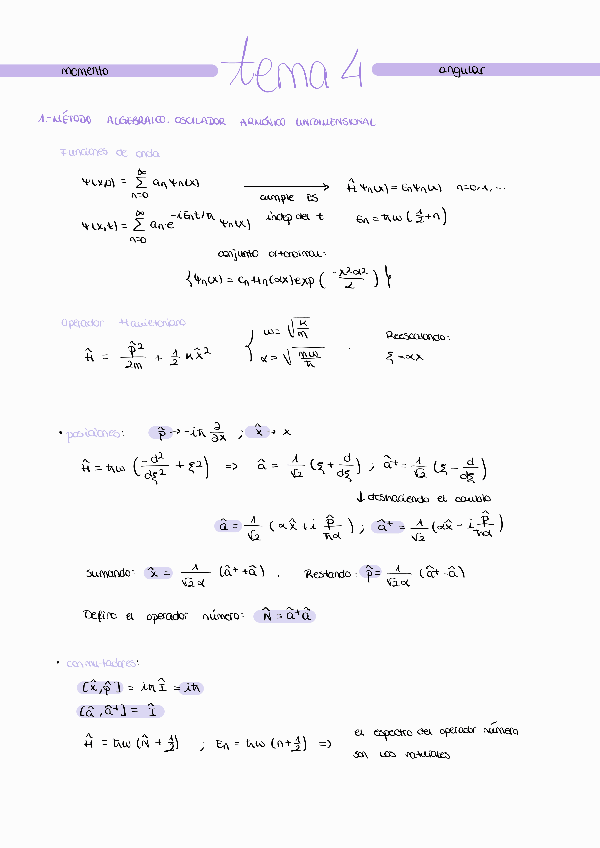 momento
tema 4
angular
1.-MÉTODO ALGEBRAICO. OSCILADOR ARMÓNICO UNIDIMENSIONAL
Funciones de onda
Ψ(x,0) = Σ_{n=0}^{∞} a_n Ψ_n(x) → cumple ES Ĥ Ψ_n(x) = E_n Ψ_n(x) n=0,1,...
Ψ(x,t) = Σ_{n=0}^{∞} a_n e^{-iE_n t/ħ} Ψ_n(x) indep del t E_n = ħω (1/2 + n)
conjunto ortonormal:
{Ψ_n(x) = C_n H_n(αx) exp(-x²α²/2)}
Operador Hamiltoniano
Ĥ = p̂²/2m + 1/2 k x̂² { ω = √(k/m) α = √(mω/ħ) . Reescalando: ξ = αx
• posiciones: p̂ → -iħ ∂/∂x ; x̂ → x
Ĥ = ħω (-d²/dξ² + ξ²) => â = 1/√2 (ξ + d/dξ) ; â⁺ = 1/√2 (ξ - d/dξ)
↓ deshaciendo el cambio
â = 1/√2 (αx̂ + i p̂/ħα) ; â⁺ = 1/√2 (αx̂ - i p̂/ħα)
Sumando: x̂ = 1/√2α (â⁺ + â) . Restando: p̂ = 1/√2α (â⁺ - â)
Defino el operador número: N̂ = â⁺â
• conmutadores:
[x̂, p̂] = iħ Î = iħ
[â, â⁺] = Î
Ĥ = ħω (N̂ + 1/2) ; E_n = ħω (n + 1/2) => el espectro del operador número
son los naturales